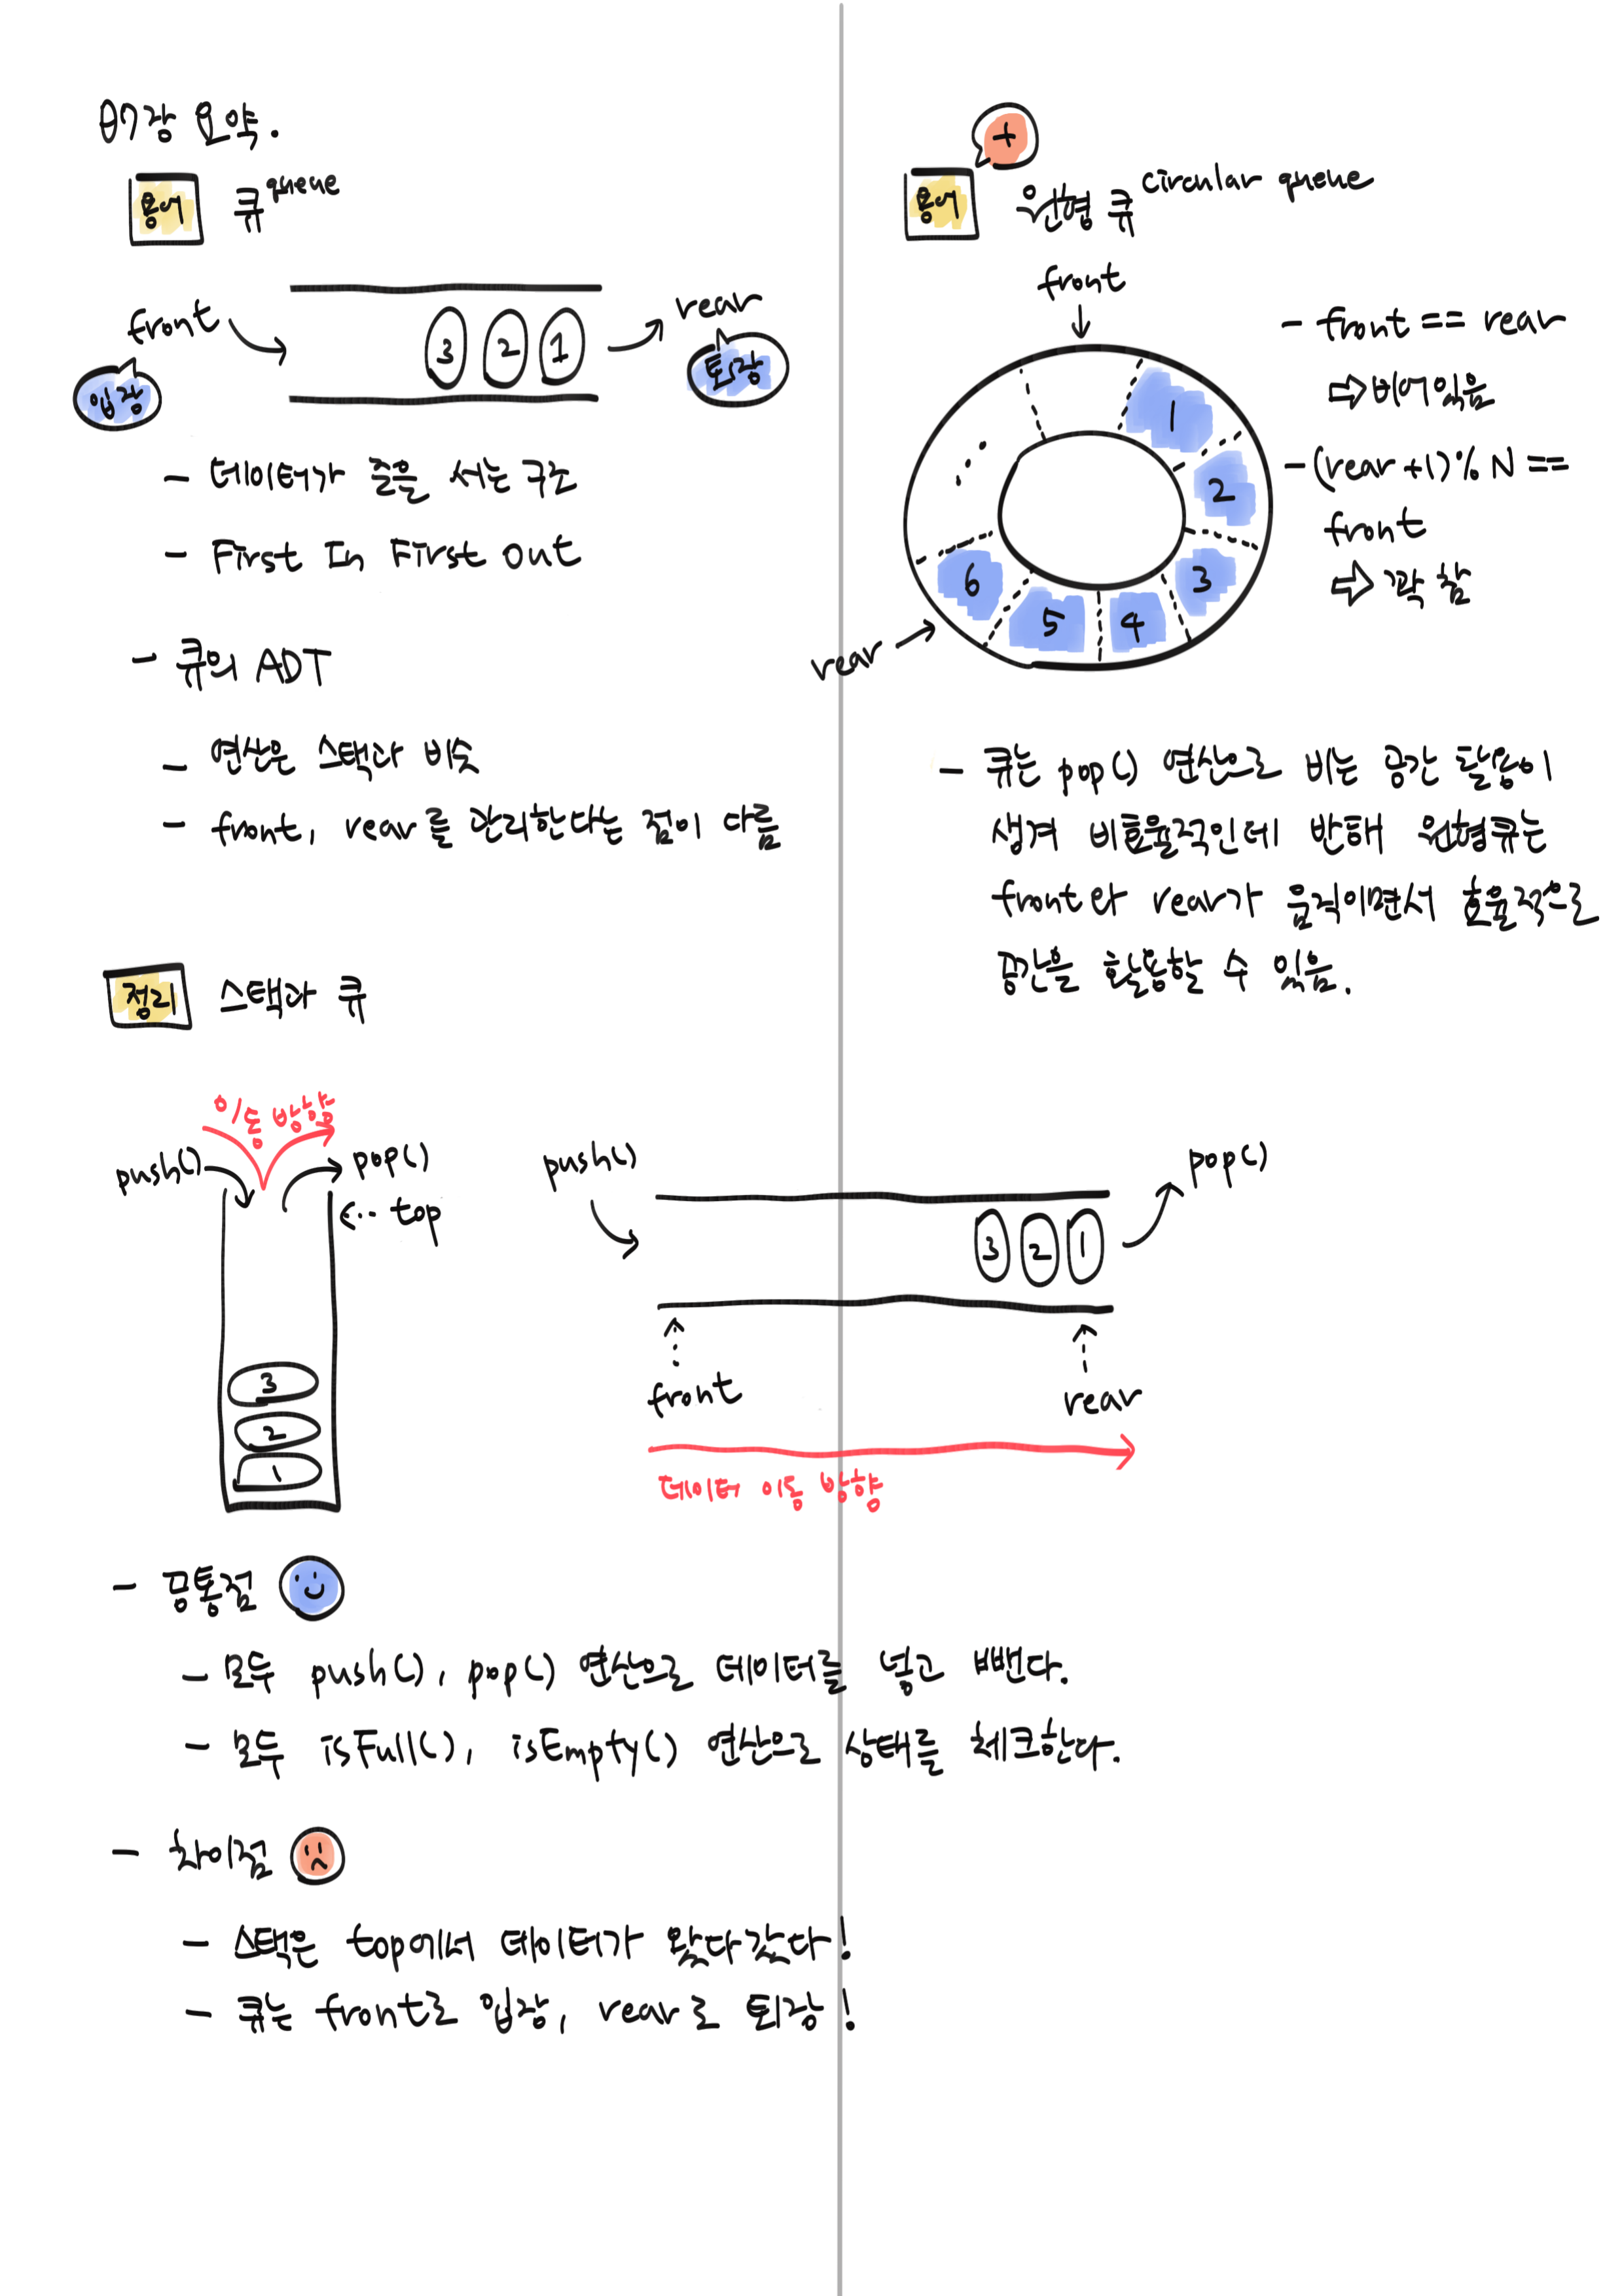 07장 요약.
용어 큐 queue
front
입장
3 2 1
rear
퇴장
- 데이터가 줄을 서는 구조
- First In First Out
- 큐의 ADT
- 연산은 스택과 비슷
- front, rear를 관리한다는 점이 다름
+
용어 원형 큐 circular queue
front
1
2
3
4
5
6
...
rear
- front == rear
⇨ 비어있음
- (rear +1) % N ==
front
⇨ 꽉 참
- 큐는 pop() 연산으로 비는 공간 활용이
생겨 비효율적인데 반해 원형큐는
front와 rear가 움직이면서 효율적으로
공간을 활용할 수 있음.
정리 스택과 큐
이동 방향
push() pop()
<-- top
3
2
1
push()
pop()
3 2 1
front
rear
데이터 이동 방향
- 공통점
- 모두 push(), pop() 연산으로 데이터를 넣고 뺀다.
- 모두 isFull(), isEmpty() 연산으로 상태를 체크한다.
- 차이점
- 스택은 top에서 데이터가 왔다갔다!
- 큐는 front로 입장, rear로 퇴장!